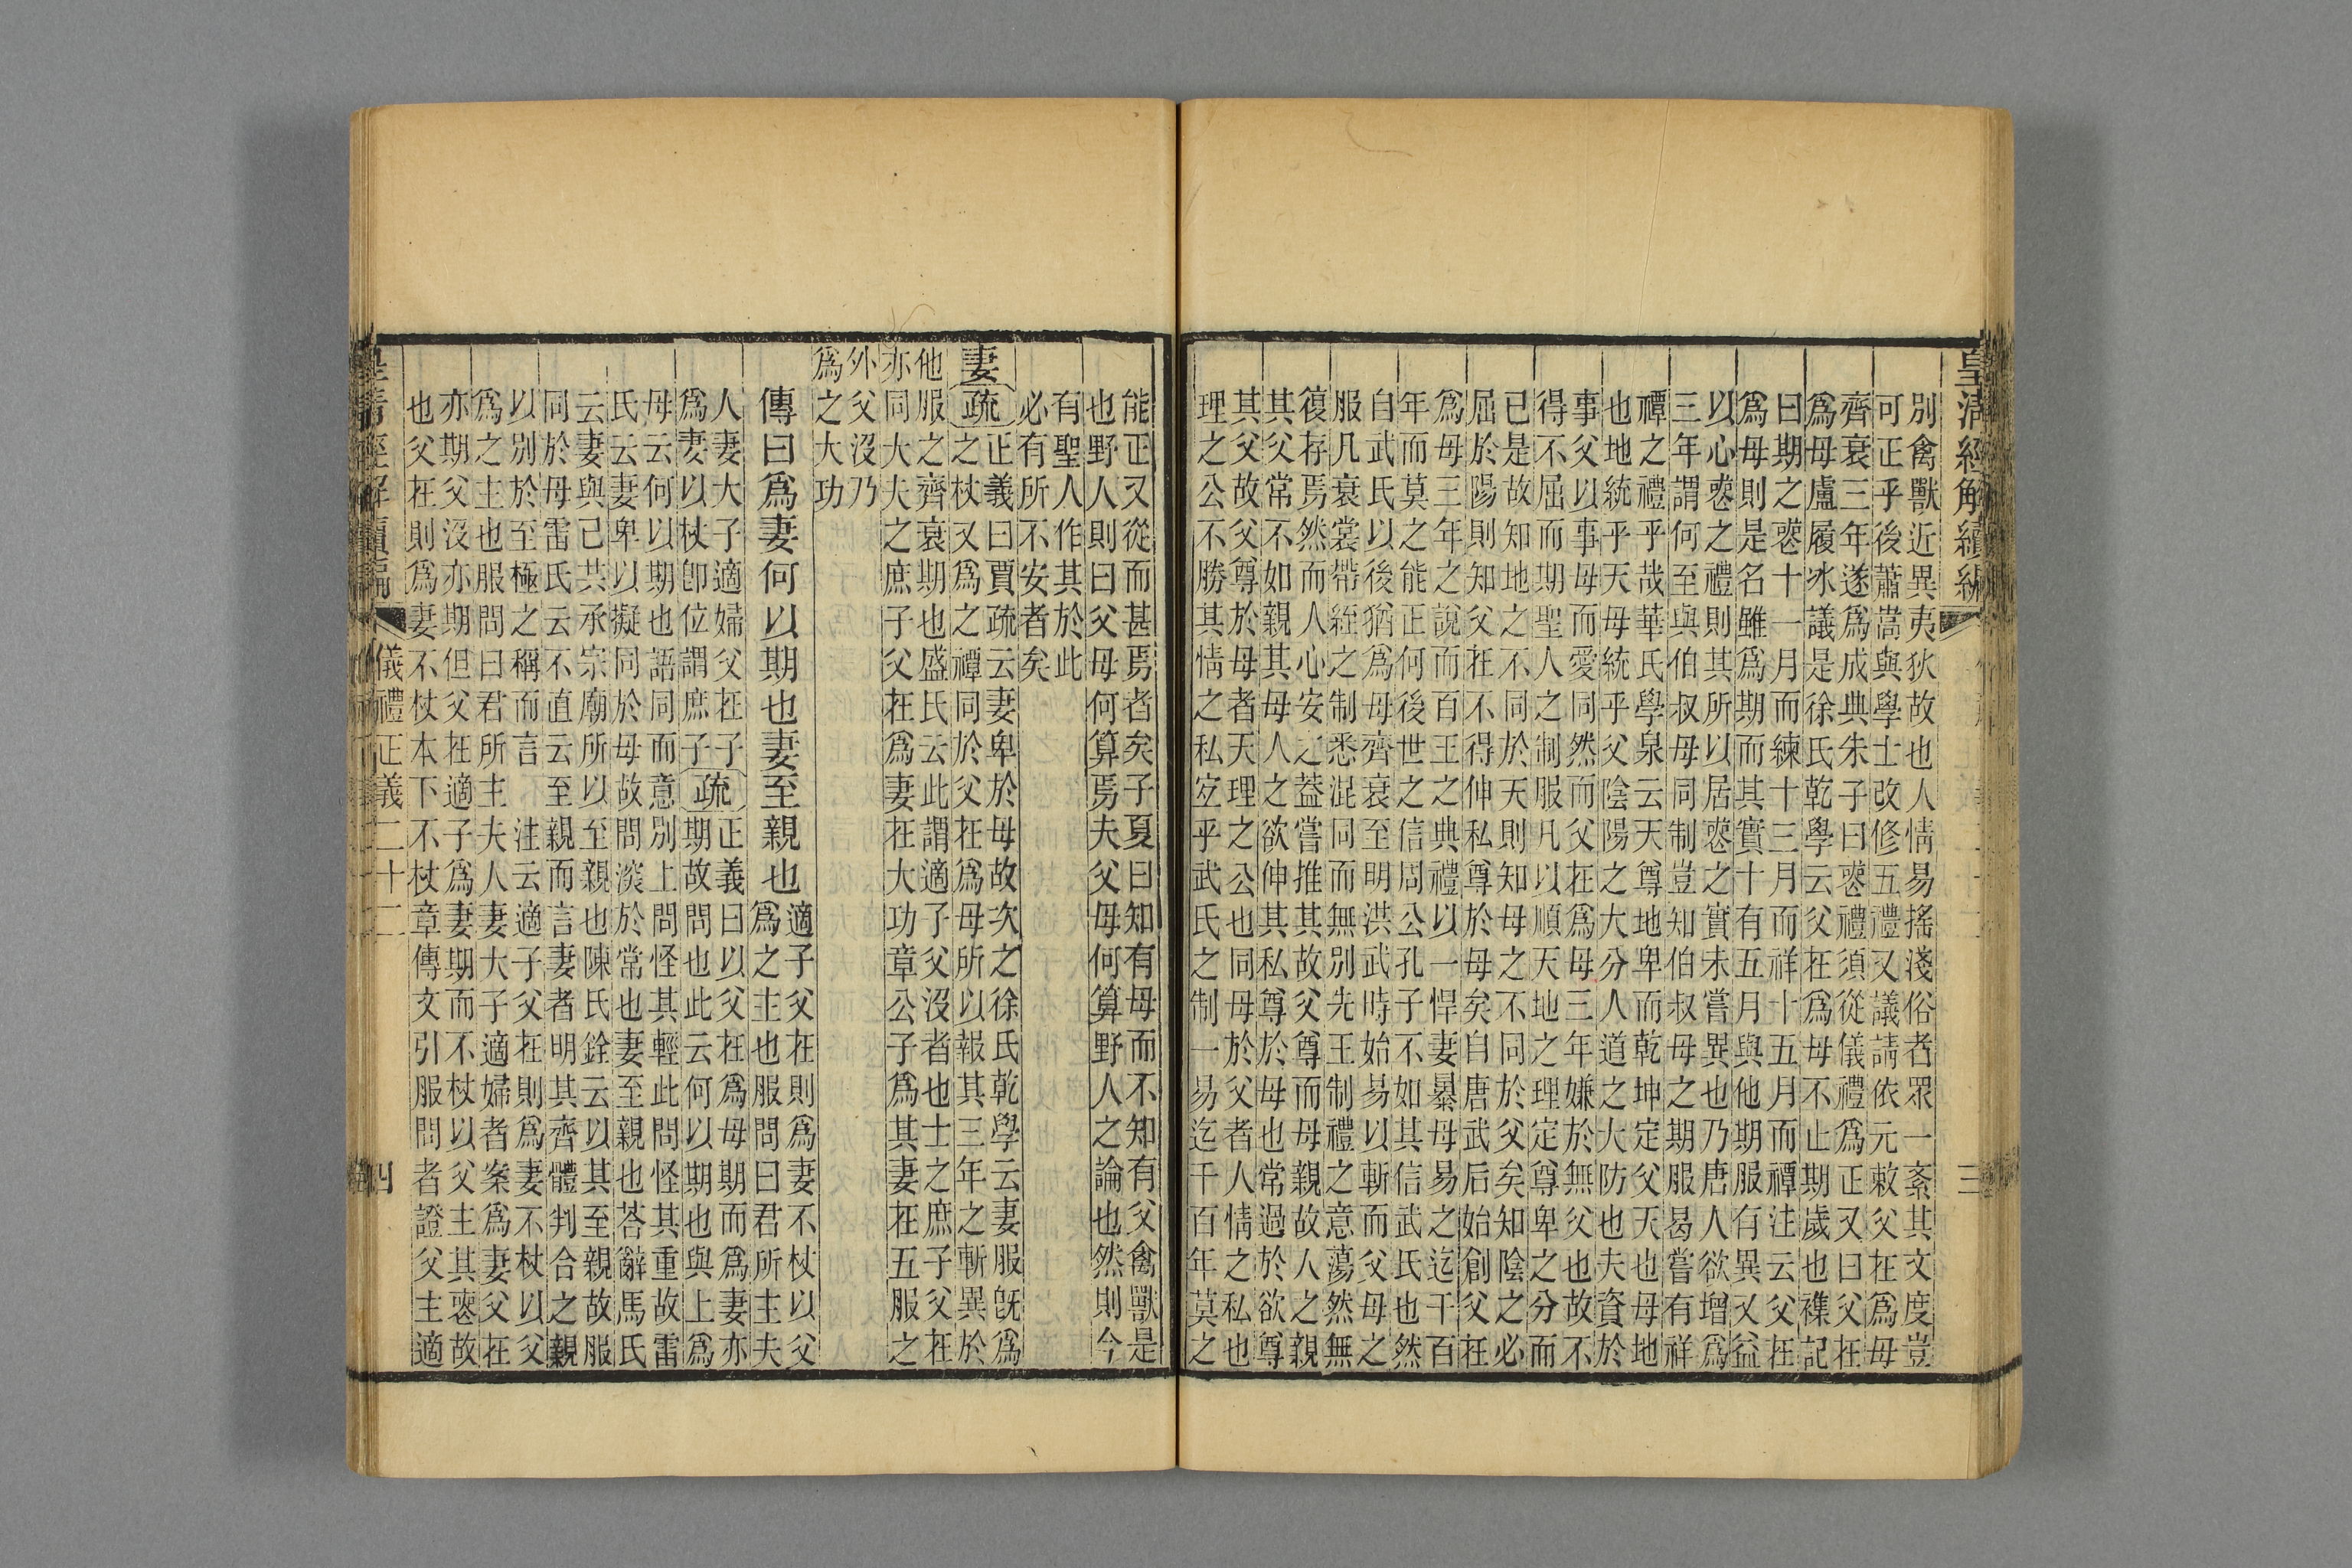 皇清經解續編
三
別禽獸近異夷狄故也人情易搖淺俗者眾一紊其文度豈
可正乎後蕭嵩與學士改修五禮又議請依元敕父在爲母
齊衰三年遂爲成典朱子曰喪禮須從儀禮爲正又曰父在
爲母盧履冰議是徐氏乾學云父在爲母不止期歲也襍記
曰期之喪十一月而練十三月而祥十五月而禫注云父在
爲母則是名雖爲期而其實十有五月與他期服有異又益
以心喪之禮則其所以居喪之實未嘗異也乃唐人欲增爲
三年謂何至與伯叔母同制豈知伯叔母之期服曷嘗有祥
禫之禮乎哉華氏學泉云天尊地卑而乾坤定父天也母地
也地統乎天母統乎父陰陽之大分人道之大防也夫資於
事父以事母而愛同然而父在爲母三年嫌於無父也故不
得不屈而期聖人之制服凡以順天地之理定尊卑之分而
已是故知地之不同於天則知母之不同於父矣知陰之必
屈於陽則知父在不得伸私尊於母矣自唐武后始創父在
爲母三年之說而百王之典禮以一悍妻暴母易之迄千百
年而莫之能正何後世之信周公孔子不如其信武氏也然
自武氏以後猶爲母齊衰至明洪武時始易以斬而父母之
服凡衰裳帶絰之制悉混同而無別先王制禮之意蕩然無
復存焉然而人心安之蓋嘗推其故父尊而母親故人之親
其父常不如親其母人之欲伸其私尊於母也常過於欲尊
其父故父尊於母者天理之公也同母於父者人情之私也
理之公不勝其情之私宐乎武氏之制一易迄千百年莫之
能正又從而甚焉者矣子夏曰知有母而不知有父禽獸是
也野人則曰父母何算焉夫父母何算野人之論也然則今
有聖人作其於此
必有所不安者矣
妻疏正義曰賈疏云妻卑於母故次之徐氏乾學云妻服旣爲
之杖又爲之禫同於父在爲母所以報其三年之斬異於
他服之齊衰期也盛氏云此謂適子父沒者也士之庶子父在
亦同大夫之庶子父在爲妻在大功章公子爲其妻在五服之
外父沒乃
爲之大功
傳曰爲妻何以期也妻至親也適子父在則爲妻不杖以父
爲之主也服問曰君所主夫
人妻大子適婦父在子
爲妻以杖卽位謂庶子疏正義曰以父在爲母期而爲妻亦
期故問也此云何以期也與上爲
母云何以期也語同而意別上問怪其輕此問怪其重故雷
氏云妻卑以擬同於母故問深於常也妻至親也荅辭馬氏
云妻與己共承宗廟所以至親也陳氏銓云以其至親故服
同於母雷氏云不直云至親而言妻者明其齊體判合之親
以別於至極之稱而言　注云適子父在則爲妻不杖以父
爲之主也服問曰君所主夫人妻大子適婦者案爲妻父在
亦期父沒亦期但父在適子爲妻期而不杖以父主其喪故
也父在則爲妻不杖本下不杖章傳文引服問者證父主適
皇清經解續編
儀禮正義二十二
四